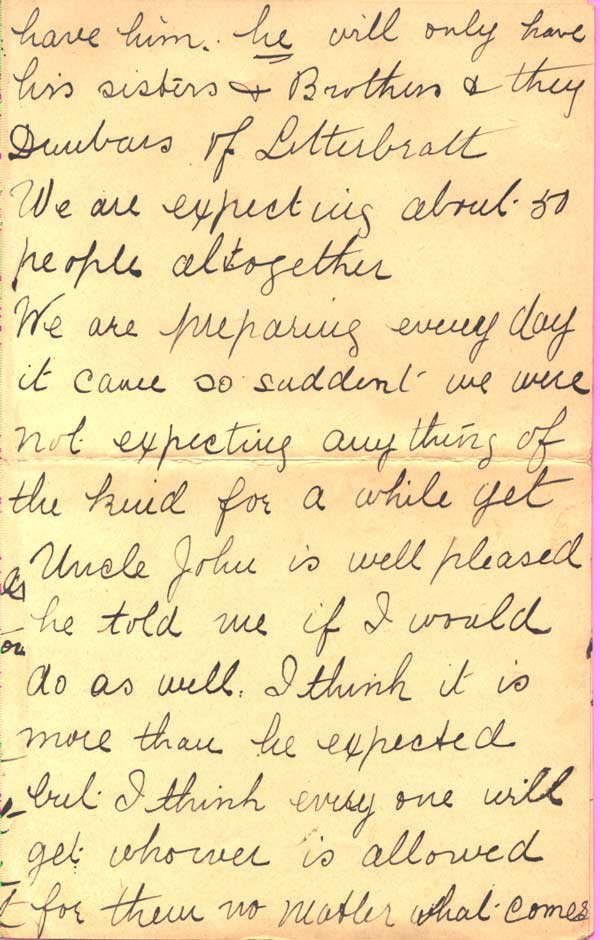 have him. he will only have
his sisters & Brothers & they
Dunbars of Letterbratt
We are expecting about 50
people altogether
We are preparing every day
it came so suddent we were
not expecting any thing of
the kind for a while yet
Uncle John is well pleased
he told me if I would
do as well. I think it is
more than he expected
but I think every one will
get whoever is allowed
for them no matter what comes